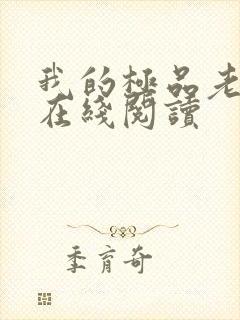 我的極品老
在綫閱讀
季育奇